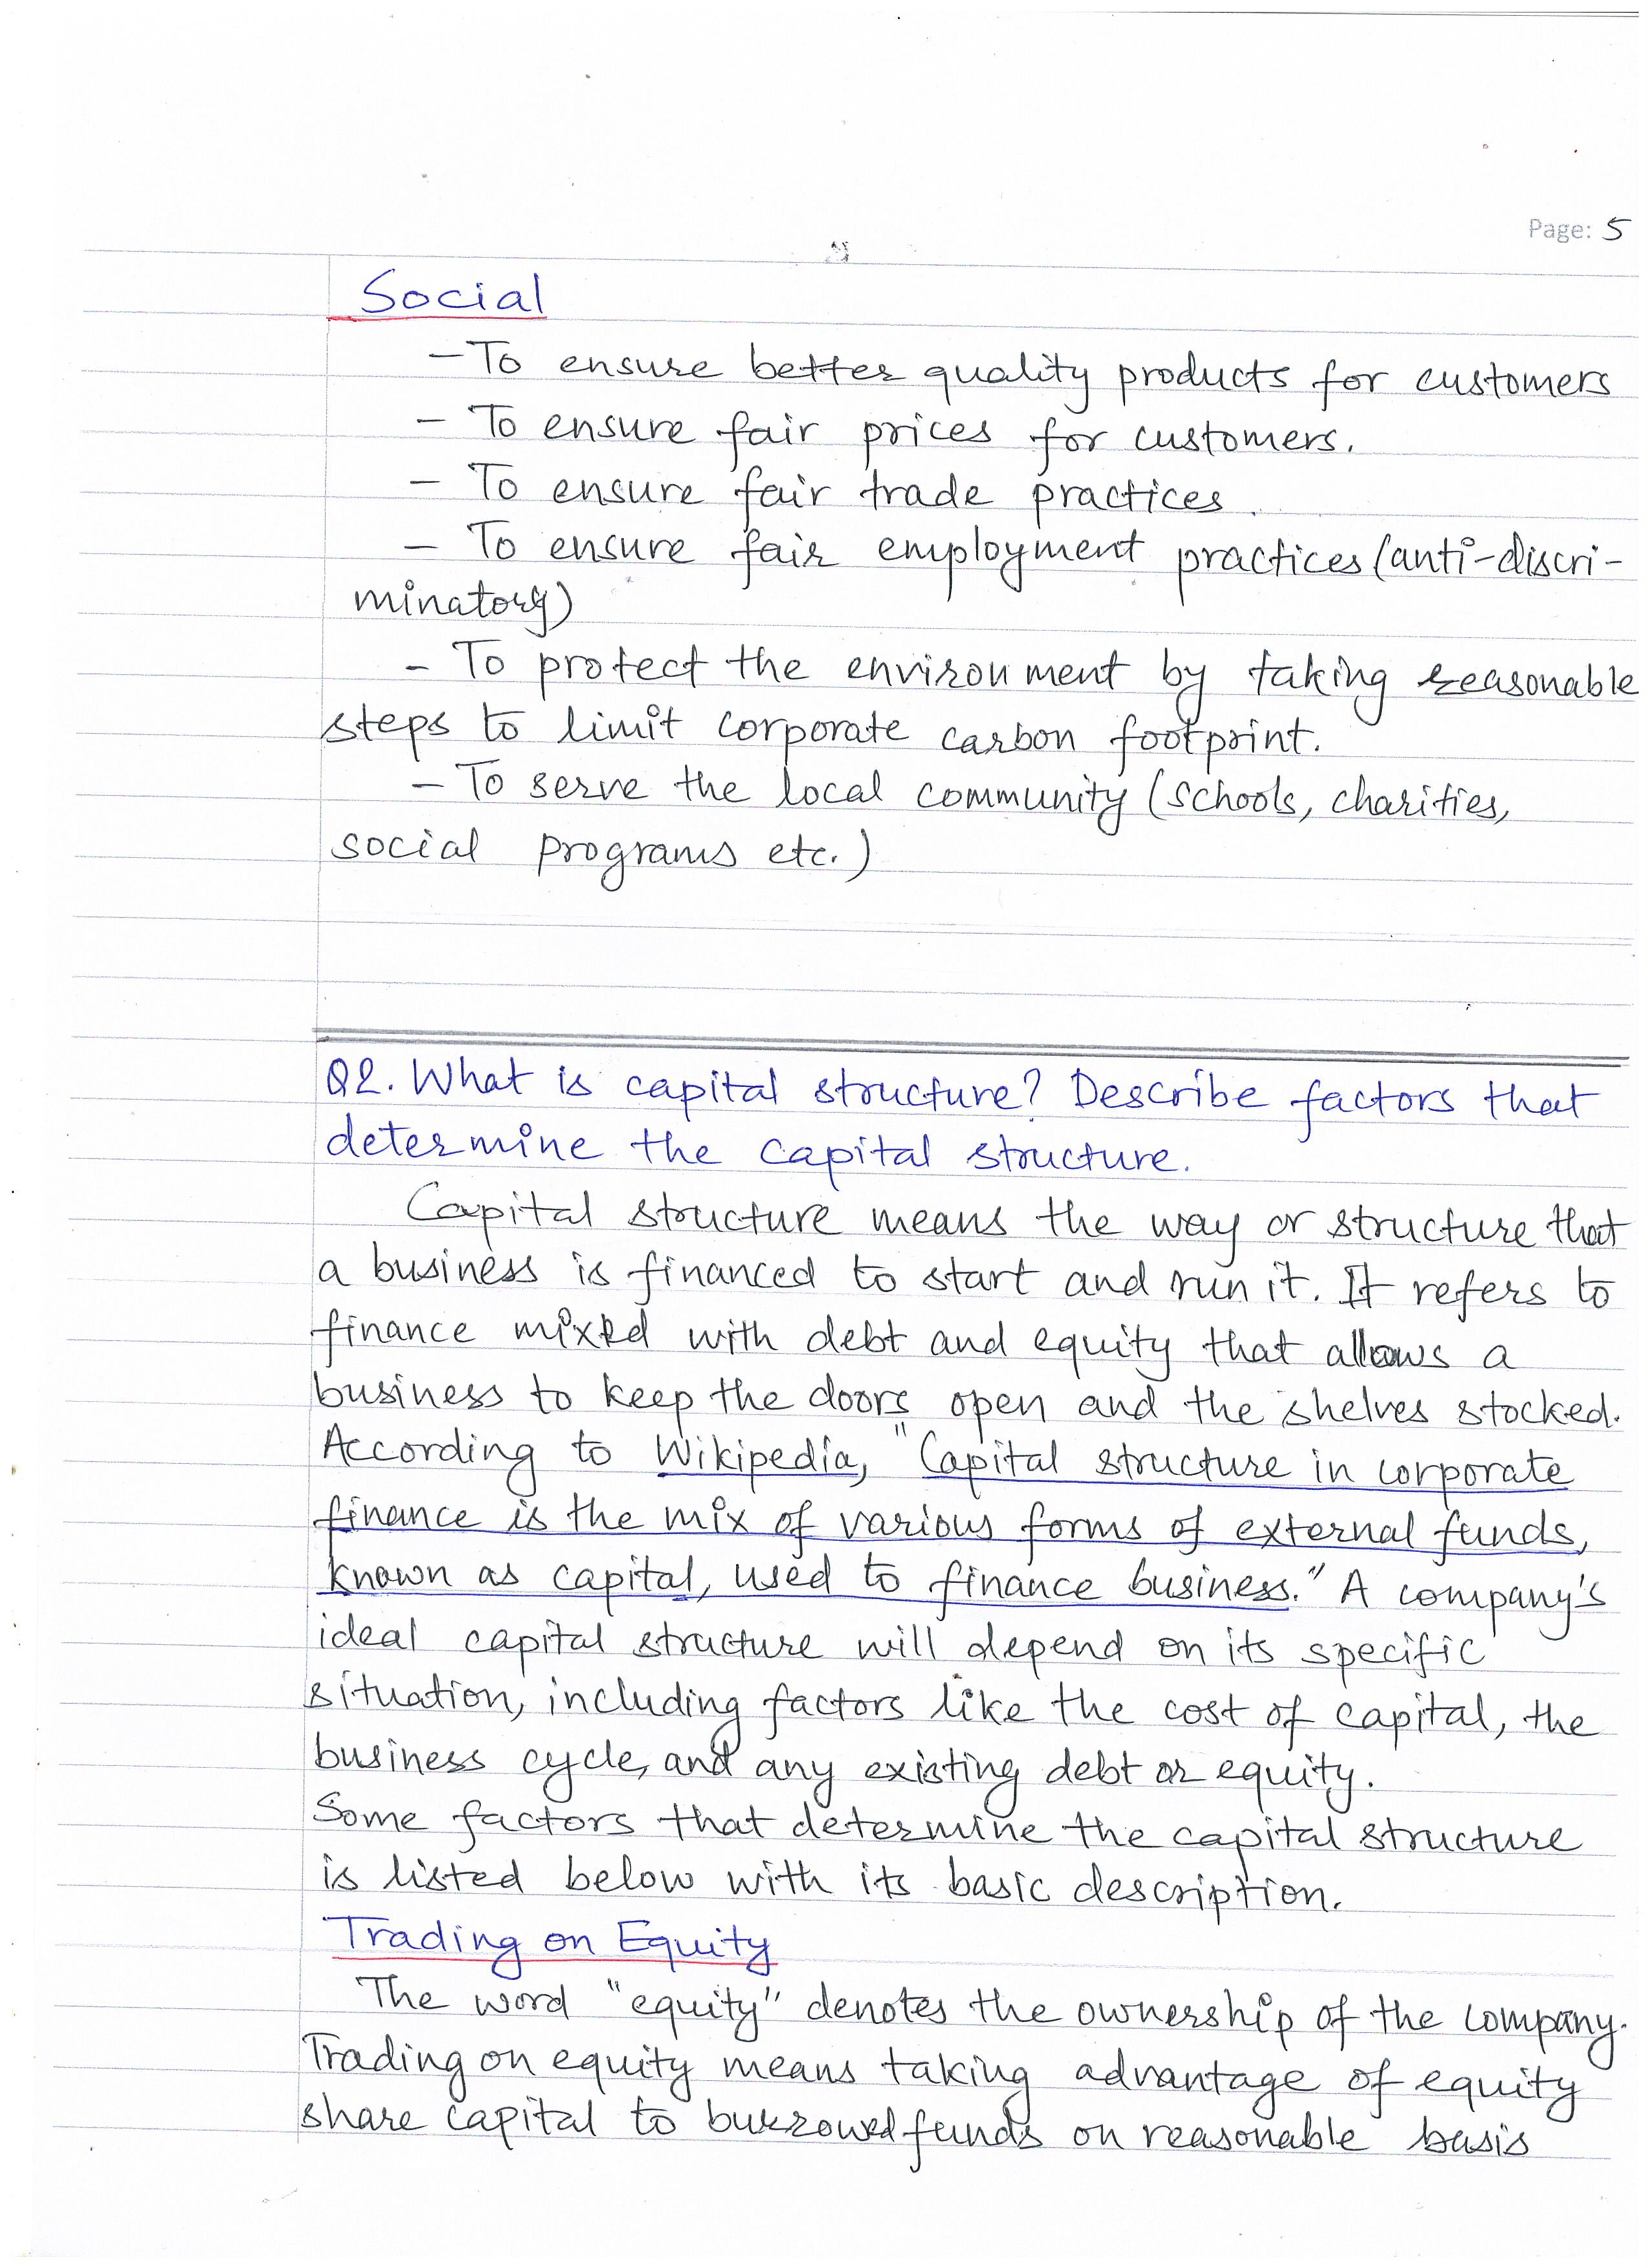 Page: 5
Social
- To ensure better quality products for customers
- To ensure fair prices for customers.
- To ensure fair trade practices.
- To ensure fair employment practices (anti-discri-
minatory)
- To protect the environment by taking reasonable
steps to limit corporate carbon footprint.
- To serve the local community (schools, charities,
social programs etc.)
Q2. What is capital structure? Describe factors that
determine the capital structure.
Capital structure means the way or structure that
a business is financed to start and run it. It refers to
finance mixed with debt and equity that allows a
business to keep the doors open and the shelves stocked.
According to Wikipedia, "Capital structure in corporate
finance is the mix of various forms of external funds,
known as capital, used to finance business." A company's
ideal capital structure will depend on its specific
situation, including factors like the cost of capital, the
business cycle, and any existing debt or equity.
Some factors that determine the capital structure
is listed below with its basic description.
Trading on Equity
The word "equity" denotes the ownership of the company.
Trading on equity means taking advantage of equity
share capital to burrowed funds on reasonable basis